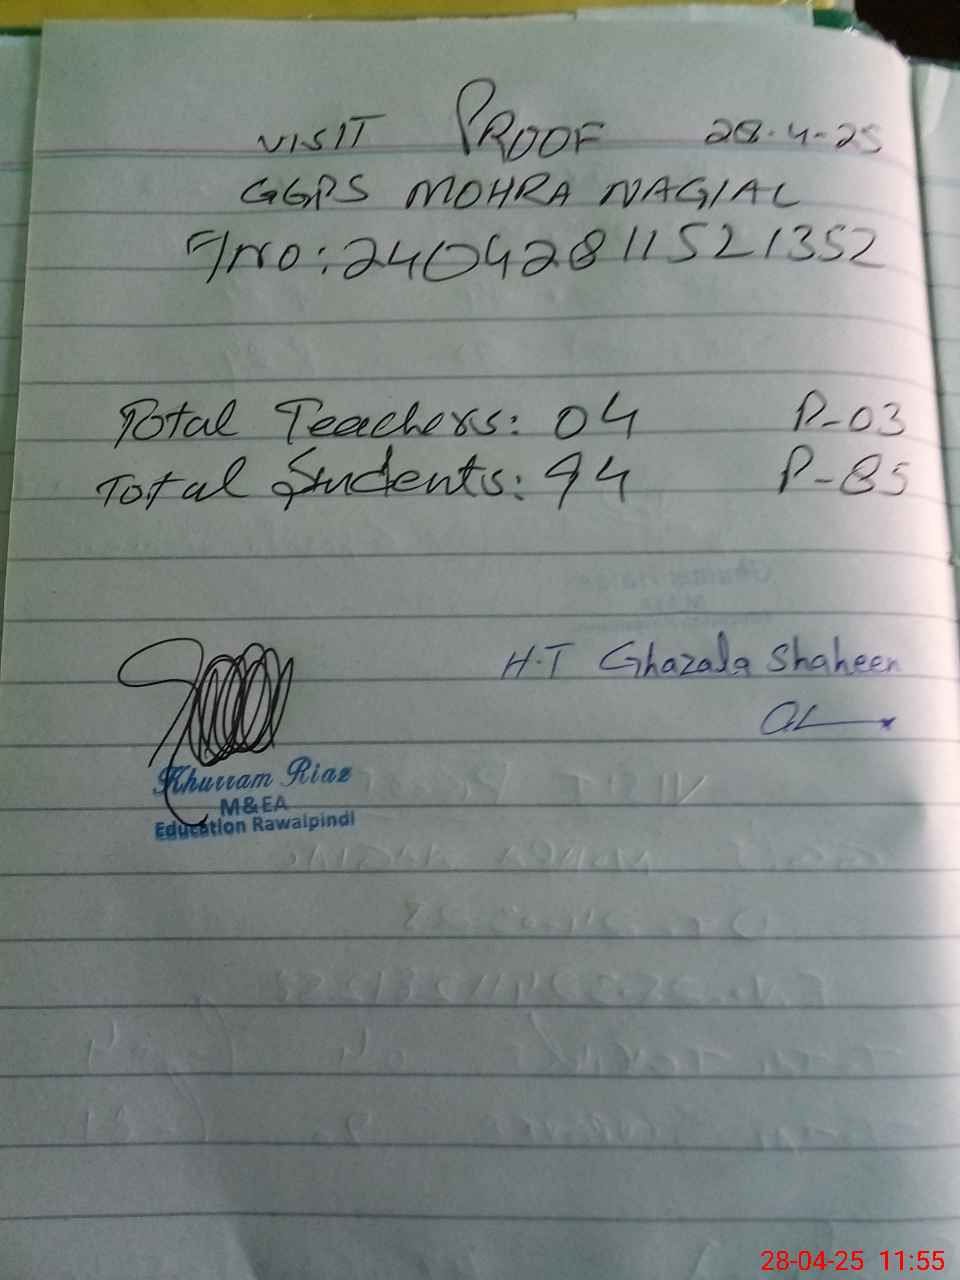 VISIT PROOF 28-4-25
GGPS MOHRA NAGIAL
F/NO: 24042811521352
Total Teachers: 04 P-03
Total Students: 94 P-85
H.T Ghazala Shaheen
Khurram Riaz
M&EA
Education Rawalpindi
28-04-25 11:55